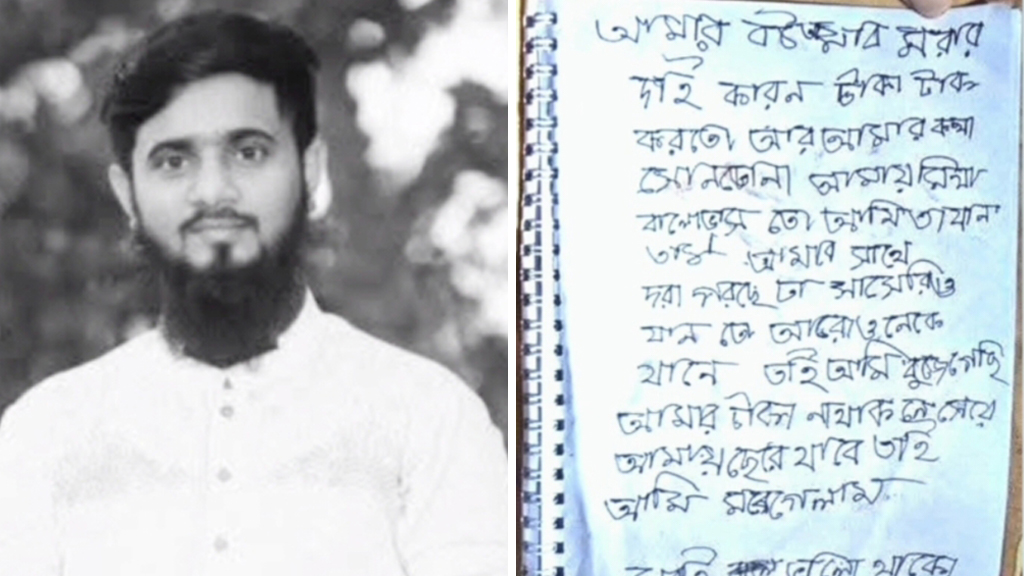 আমার বউআমার মরার
দাই কারন টাকা টাক
করতো আর আমার কথা
সোনতোনা আমায় মিথা
বালোভাস তো আমি তা যান
আমার সাথে
দরা পরছে টা
যান তো আরো ওনেকে
যানে তাই আমি বুজেগেছি
আমার টাকা নাথাক লে সেয়ে
আমায় ছেরে যাবে তাই
আমি মরেগেলাম
ভালো থাকো